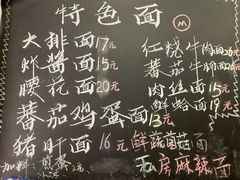 特色面
大排面17元
炸酱面15元
腰花面20元
蕃茄鸡蛋面13元
猪肝面16元
红烧牛肉面20元
蕃茄牛腩面
肉丝面15元
鲜蛤面19元
鲜蔬菌菇面
私房麻辣面
加料